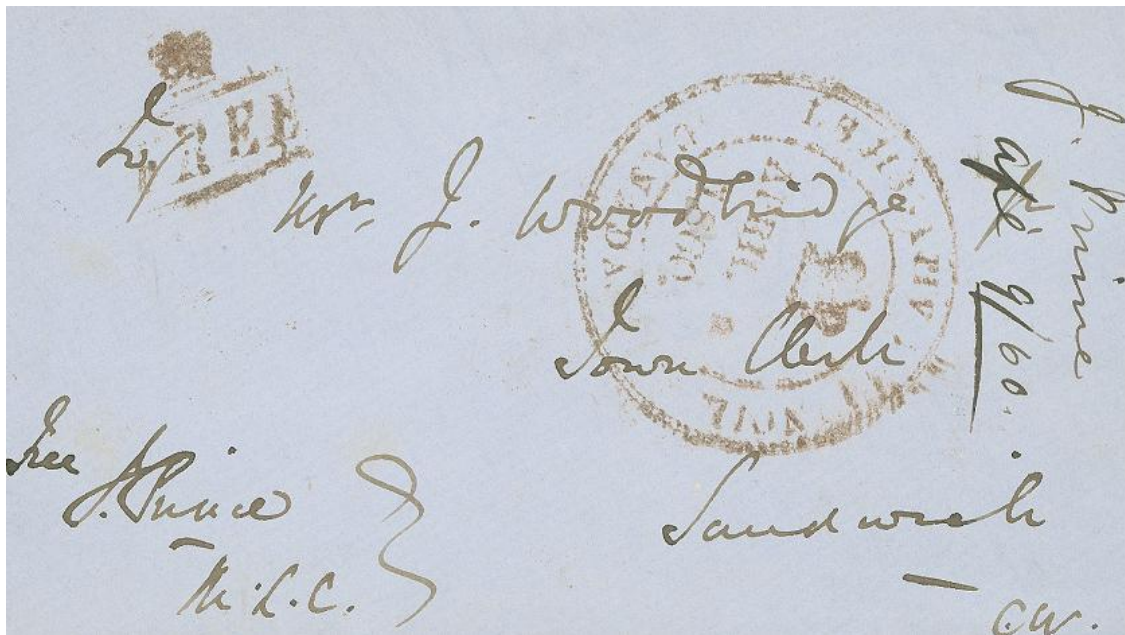 FREE
Mr. J. Woodbridge
Town Clerk
Sandwich
C.W.
Free
J. Prince
M.L.C.
J. Prince
9/60.